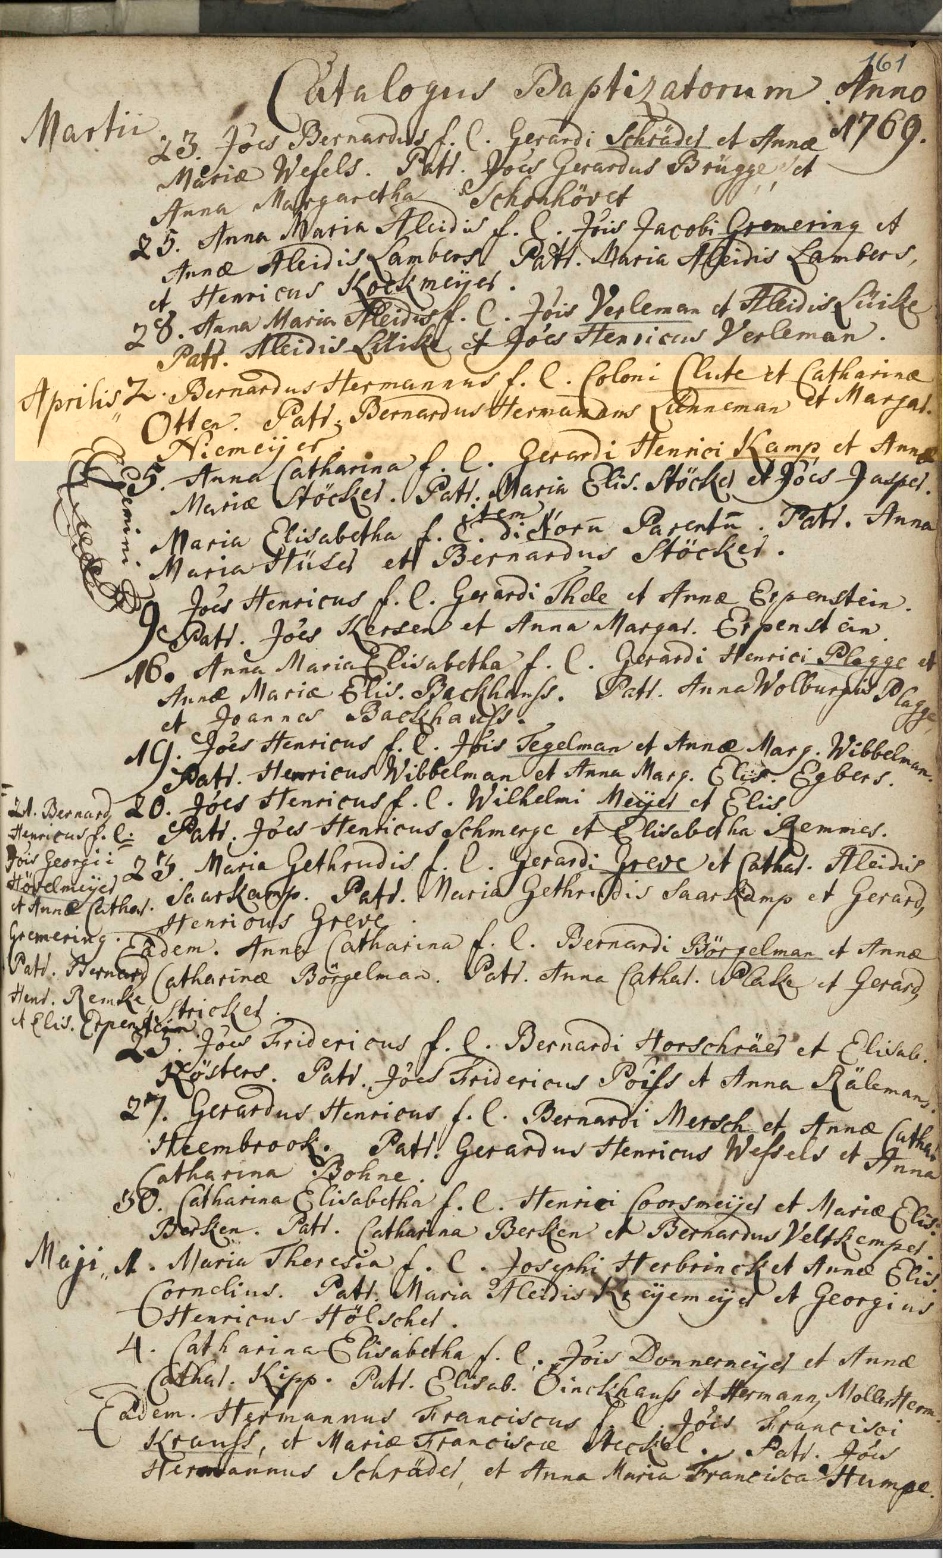 161
Catalogus Baptizatorum Anno
1769.
Martii. 23. Jões Bernardus f. l. Gerardi Schräder et Annæ
Mariæ Wesels. Patr. Jões Gerardus Brügge et
Anna Margaretha Schonhövet
25. Anna Maria Aleidis f. l. Jõis Jacobi Gremering et
Annæ Aleidis Lambers. Patr. Maria Aleidis Lambers,
et Henricus Kockmeijer.
28. Anna Maria Aleidis f. l. Jõis Verleman et Aleidis Lüike
Patr. Aleidis Lüike et Jões Henricus Verleman.
Aprilis 2. Bernardus Hermannus f. l. Coloni Clute et Catharinæ
Otten. Patr. Bernardus Hermannus Lünneman et Margar.
Niemeijer.
5. Anna Catharina f. l. Gerardi Henrici Kamp et Annæ
Mariæ Stöcker. Patr. Maria Elis. Stöcker et Jões Jasper.
Gemini
item
Maria Elisabetha f. l. dictorũ Parentũ. Patr. Anna
Maria Hüser et Bernardus Stöcker.
9. Jões Henricus f. l. Gerardi Thele et Annæ Erpenstein.
Patr. Jões Kersen et Anna Margar. Erpenstein.
16. Anna Maria Elisabetha f. l. Gerardi Henrici Plagge et
Annæ Mariæ Elis. Backhauss. Patr. Anna Wolburgis Plagge
et Joannes Backhauss.
19. Jões Henricus f. l. Jõis Tegelman et Annæ Marg. Wibbelman.
Patr. Henricus Wibbelman et Anna Marg. Elis. Egbers.
20. Jões Henricus f. l. Wilhelmi Meijer et Elis
Patr. Jões Henricus Schmerge et Elisabetha Remmes.
21. Bernard
Henricus f. l.
Jõis Georgii
Hövelmeijer
et Annæ Cathar.
Gremering.
Patr. Bernard
Henr. Remke
et Elis. Erpenstein
23. Maria Gethrudis f. l. Gerardi Greve et Cathar. Aleidis
Saarkamp. Patr. Maria Gethrudis Saarkamp et Gerard,
Henricus Greve.
Eadem. Anna Catharina f. l. Bernardi Börgelman et Annæ
Catharinæ Börgelman. Patr. Anna Cathar. Plake et Gerard,
Stricker.
25. Jões Fridericus f. l. Bernardi Horschräer et Elisab.
Kösters. Patr. Jões Fridericus Poiss et Anna Rälemans.
27. Gerardus Henricus f. l. Bernardi Mersch et Annæ Cathar.
Heembrook. Patr. Gerardus Henricus Wessels et Anna
Catharina Bohne.
30. Catharina Elisabetha f. l. Henrici Coorsmeijer et Mariæ Elis.
Berken. Patr. Catharina Berken et Bernardus Veltkemper.
Maji 1. Maria Theresia f. l. Josephi Herbrinck et Annæ Elis.
Cornelius. Patr. Maria Aleidis et Georgius
Henricus Hölscher.
4. Catharina Elisabetha f. l. Jõis Donnermeijer et Annæ
Cathar. Kipp. Patr. Elisab. Oinckhauss et Hermann, Moller
Eadem. Hermannus Franciscus f. l. Jõis Francisci
Krauss, et Mariæ Franciscæ Steckel. Patr. Jões
Hermannus Schräder, et Anna Maria Francisca Humpe.